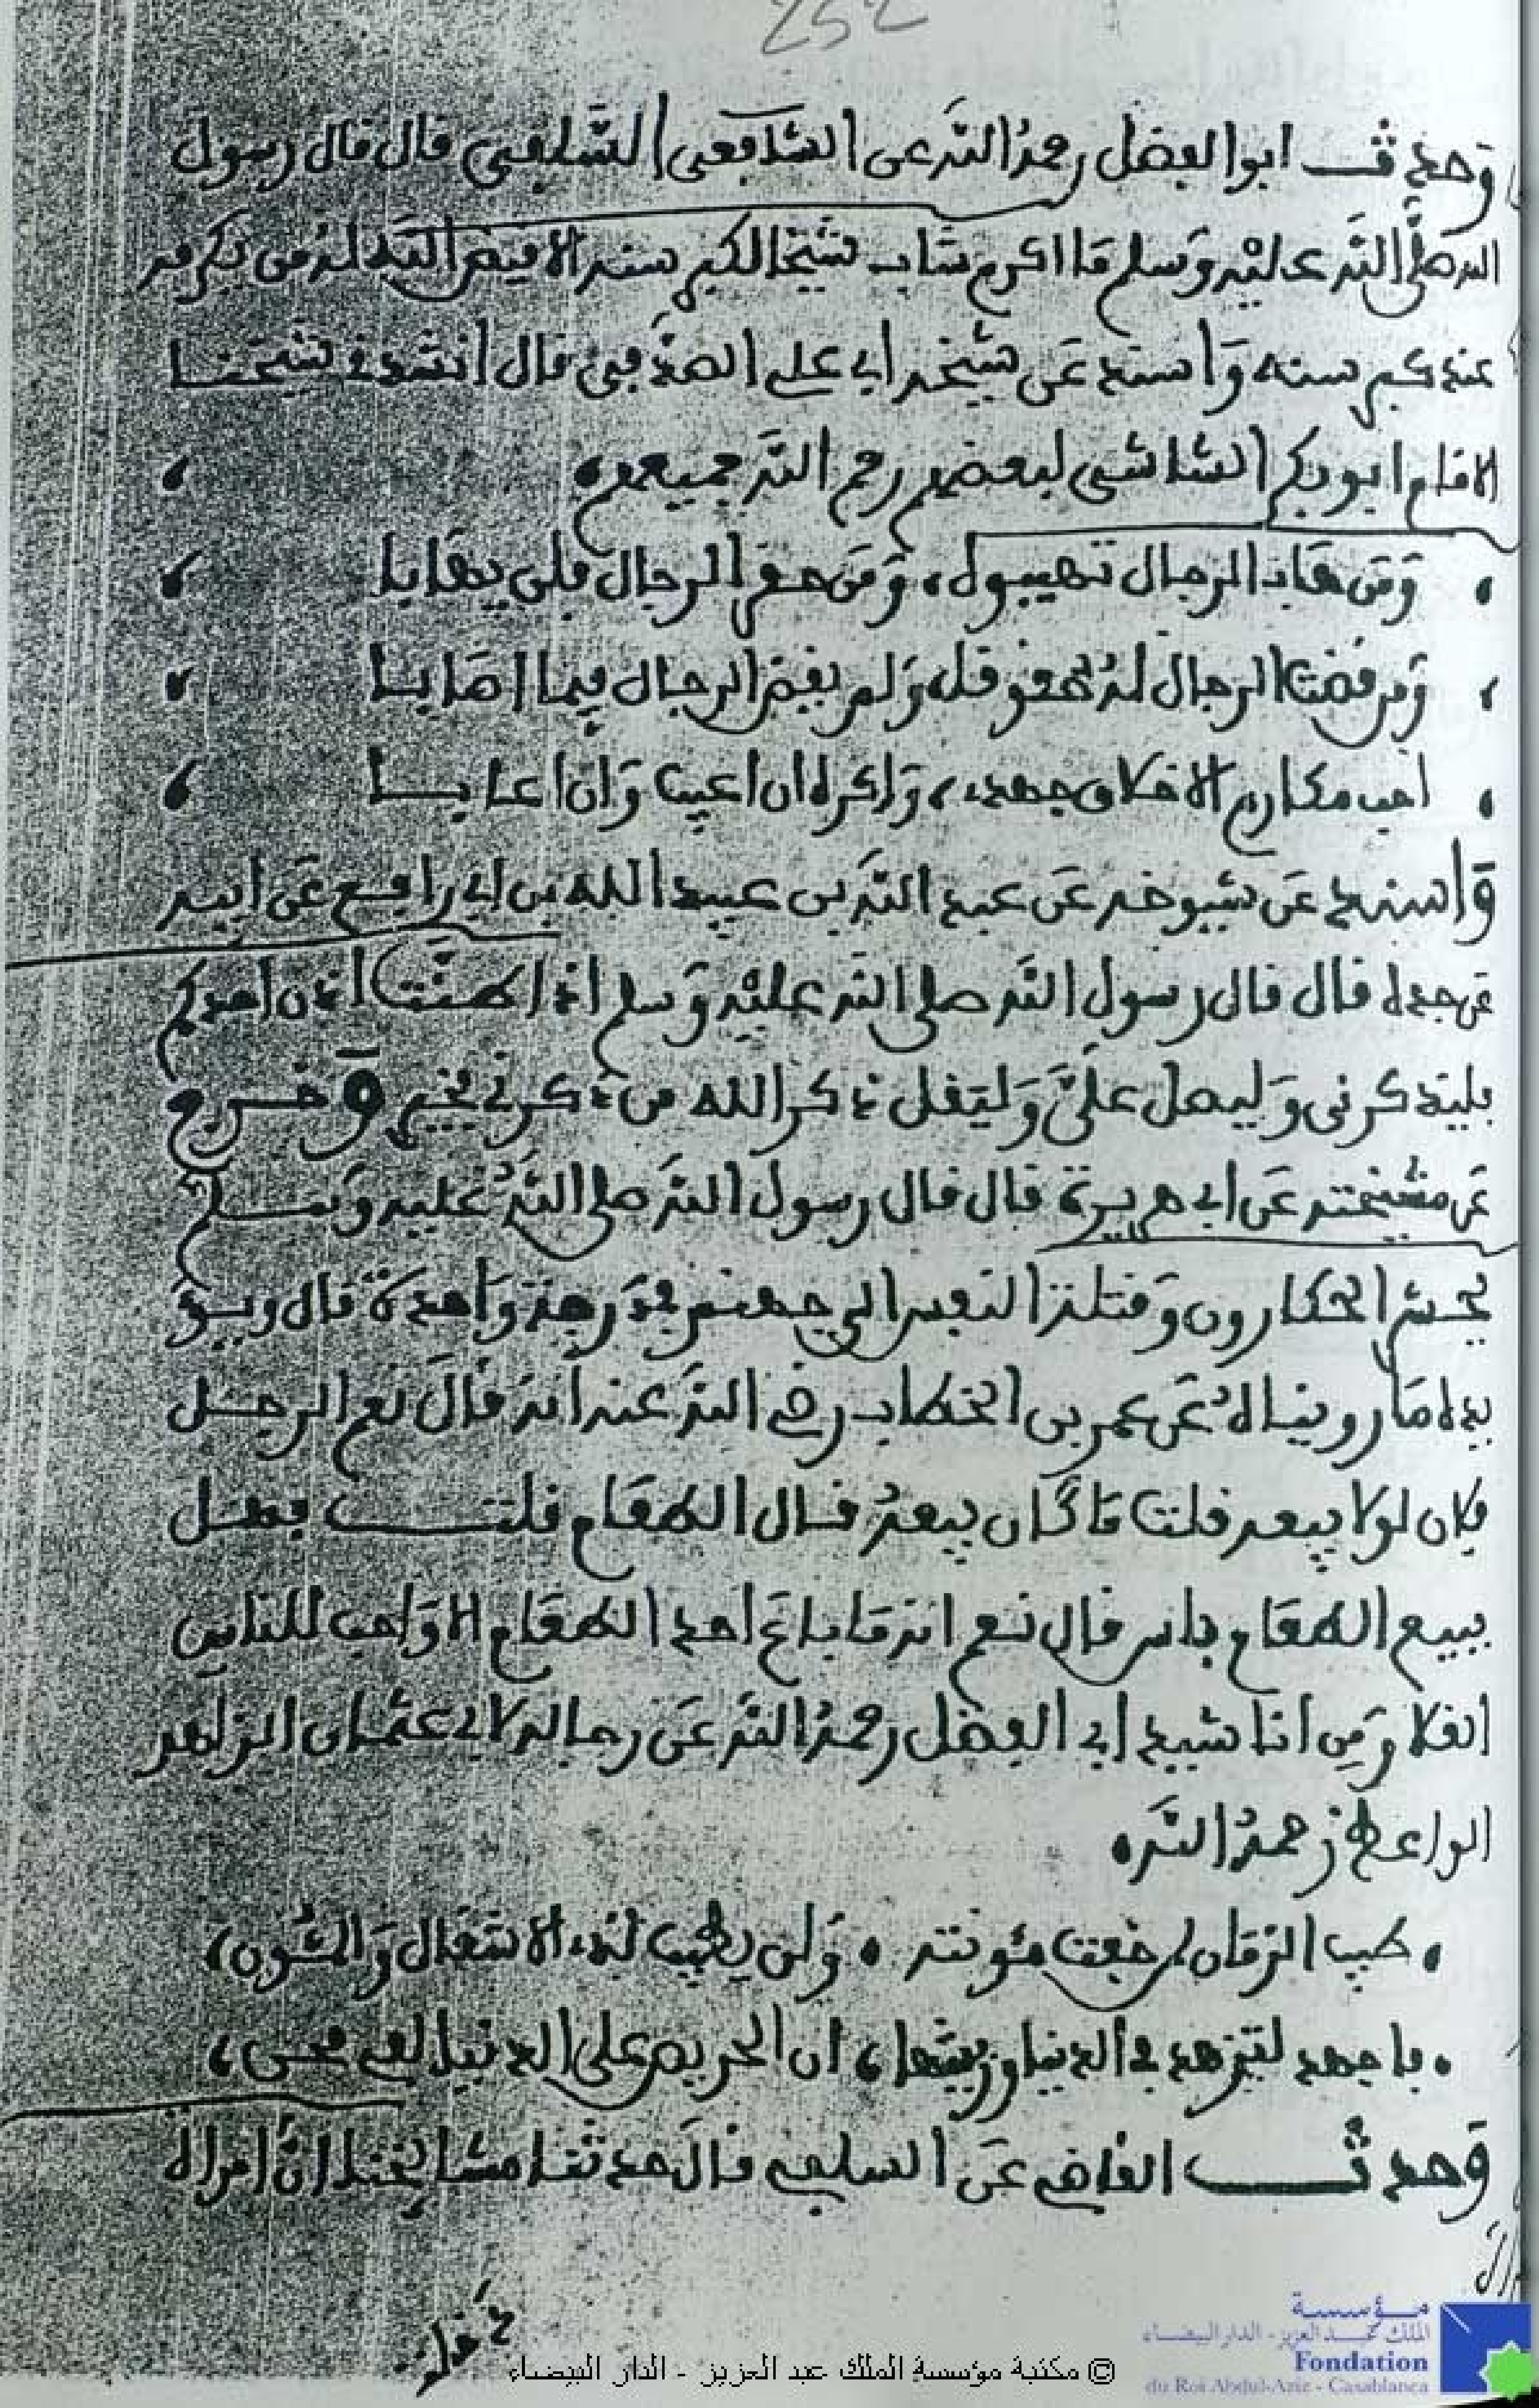 252
وحدث ابو الفضل رحمه الله عن الشافعي السلفي قال قال رسول
الله صلى الله عليه وسلم ما اكرم شاب شيخا لكبر سنه الا قيض الله له من يكرمه
عند كبر سنه واسند عن شيخه ابي علي الصدفي قال انشدني شيخنا
الامام ابو بكر الشاشي لبعضهم رحم الله جميعهم
ومن هاب الرجال تهيبوه، ومن حقر الرجال فلن يهابا
ومن قضت الرجال له حقوقا، ولم يقض الرجال فما اصابا
احب مكارم الاخلاق جهدي، واكره ان اعيب وان اعابا
واسند عن شيوخه عن عبد الله بن عبيد الله بن ابي رافع عن ابيه
عن جده قال قال رسول الله صلى الله عليه وسلم اذا طنت اذن احدكم
فليذكرني وليصل علي وليقل ذكر الله من ذكرني بخير وخرج
عن مشيخته عن ابي هريرة قال قال رسول الله صلى الله عليه وسلم
يحشر الحكارون وقتلة النفس الى جهنم في درجة واحدة قال
ما رويناه عن عمر بن الخطاب رضي الله عنه انه قال نعم الرجل
فلان لولا بيعه قلت ما كان بيعه قال الطعام قلت
ببيع الطعام باس قال نعم انه ما باع احد الطعام الا واحب للناس
الغلا ومن اناشيد ابي الفضل رحمه الله عن رجاله لابي عثمان الزاهد
الواعظ رحمه الله
طيب الزمان لمن خفت مئونته، ولن يطيب لذي الاشغال والمئون،
فاجهد لتزهد في الدنيا وزينتها، ان الحريص على الدنيا لفي محن،
وحدث القاضي عن السلفي قال حدثنا مشايخنا ان امراة
© مكتبة مؤسسة الملك عبد العزيز - الدار البيضاء
مؤسسة
الملك عبد العزيز - الدار البيضاء
Fondation
du Roi Abdul-Aziz - Casablanca